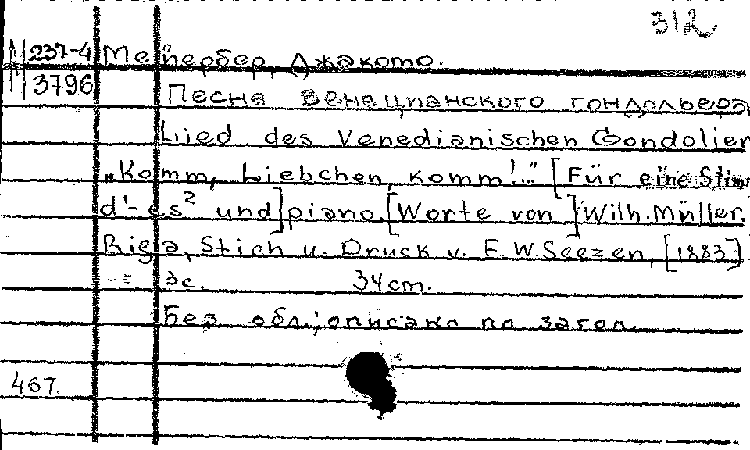 312
П 237-4 Мейербер, Джакомо.
П 3796 Песня венецианского гондольера
Lied des Venedianischen Gondolier
„Komm, Liebchen, komm!.." [Für eine Stim
d'-es² und] piano. [Worte von] Wilh. Müller.
Riga, Stich u. Druck v. E. W. Seezen, [1883]
3с. 34 cm.
Без обл.; описано по загол.
467.